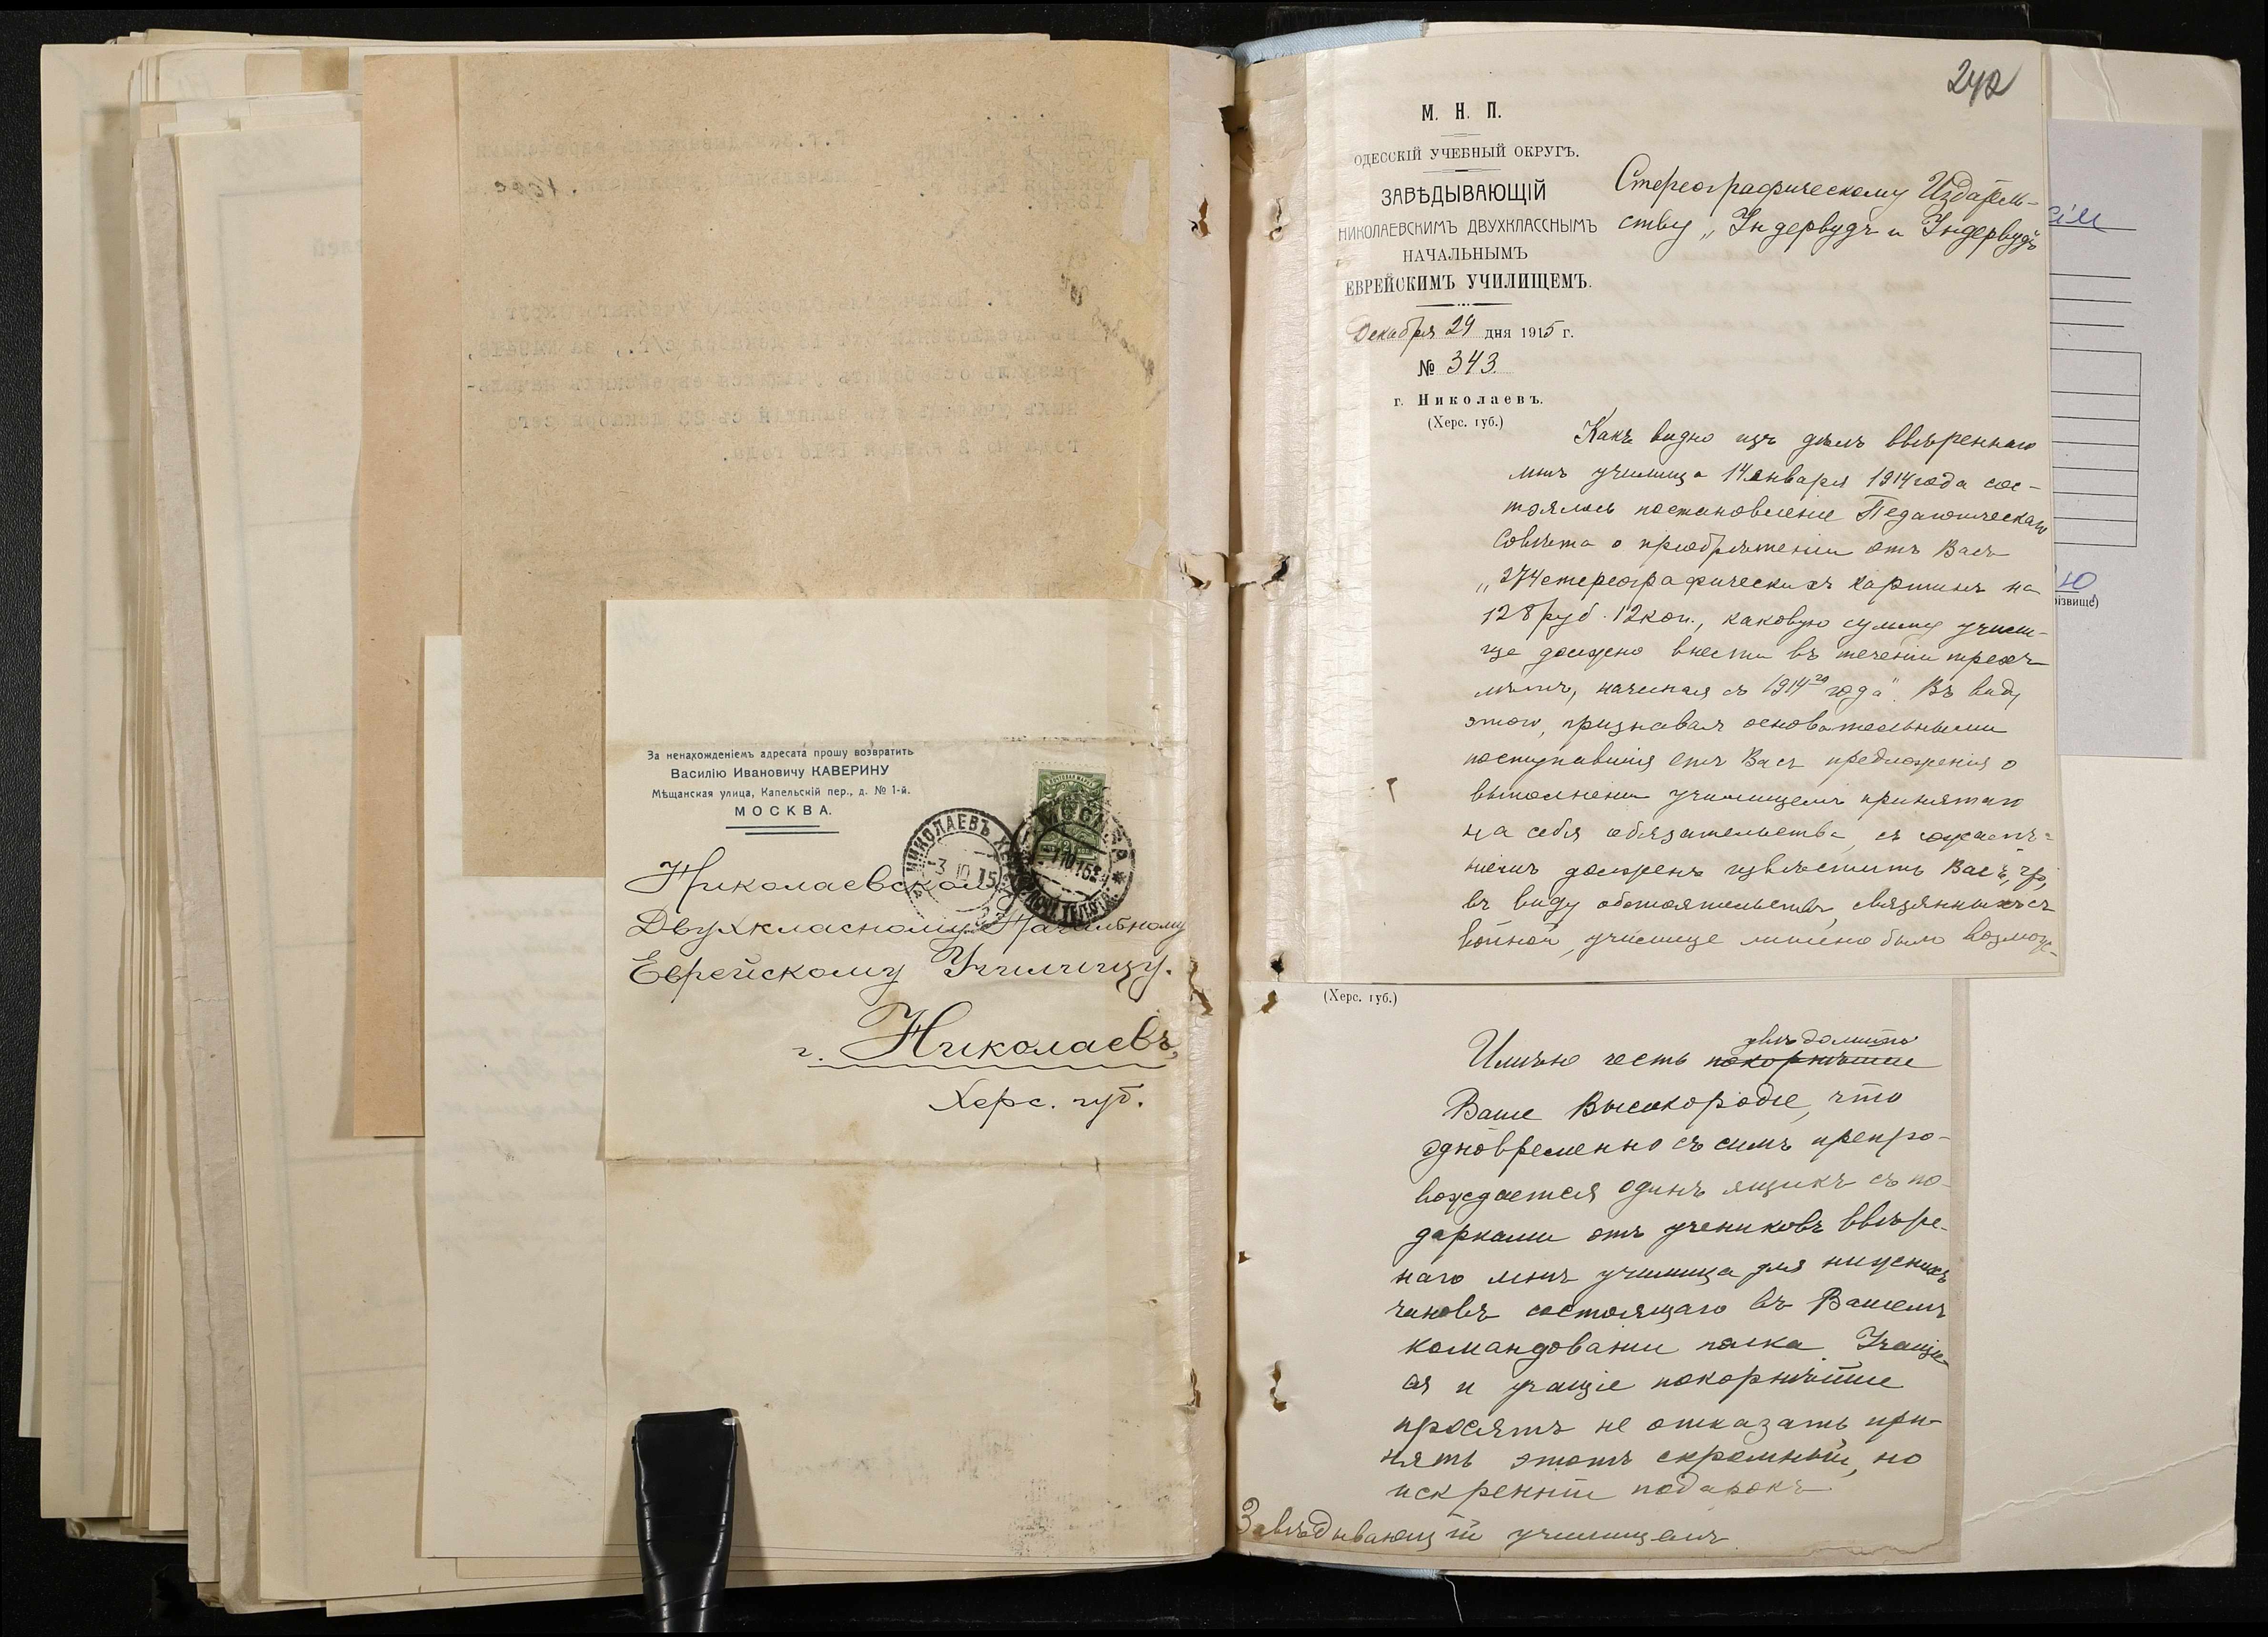 За ненахожденіемъ адресата прошу возвратить
Василію Ивановичу КАВЕРИНУ
Мѣщанская улица, Капельскій пер., д. № 1-й.
МОСКВА.
НИКОЛАЕВЪ ХЕРС
3 10 15
МОСКВА
Николаевскому
Двухкласному Начальному
Еврейскому Училищу.
г. Николаевъ,
Херс. губ.
242
М. Н. П.
ОДЕССКІЙ УЧЕБНЫЙ ОКРУГЪ.
ЗАВѢДЫВАЮЩІЙ
НИКОЛАЕВСКИМЪ ДВУХКЛАССНЫМЪ
НАЧАЛЬНЫМЪ
ЕВРЕЙСКИМЪ УЧИЛИЩЕМЪ.
Декабря 29 дня 1915 г.
№ 343.
г. Николаевъ.
(Херс. губ.)
Стереографическому Издатель-
ству „Ундервудъ и Ундервудъ
Какъ видно изъ дѣлъ ввѣреннаго
мнѣ училища 14 января 1914 года сос-
тоялось постановленіе Педагогическаго
Совѣта о пріобрѣтеніи отъ Васъ
„274 стереографическихъ картинъ на
128 руб. 12 коп., каковую сумму учили-
ще должно внести въ теченіи трехъ
лѣтъ, начиная съ 1914го года". Въ виду
этого, признавая основательными
поступавшія отъ Васъ предложенія о
выполненіи училищемъ принятаго
на себя обязательства, съ сожалѣ-
ніемъ долженъ извѣстить Васъ, что,
въ виду обстоятельствъ, связанныхъ съ
войной, училище лишено было возмож-
(Херс. губ.)
увѣдомить
Имѣю честь покорнѣйше
Ваше Высокородіе, что
одновременно съ симъ препро-
вождается одинъ ящикъ съ по-
дарками отъ учениковъ ввѣре-
наго мнѣ училища для нижнихъ
чиновъ состоящаго въ Вашемъ
командованіи полка. Учащіе-
ся и учащіе покорнѣйше
просятъ не отказать при-
нять этотъ скромный, но
искренній подарокъ.
Завѣдывающій училищемъ
ізвище)